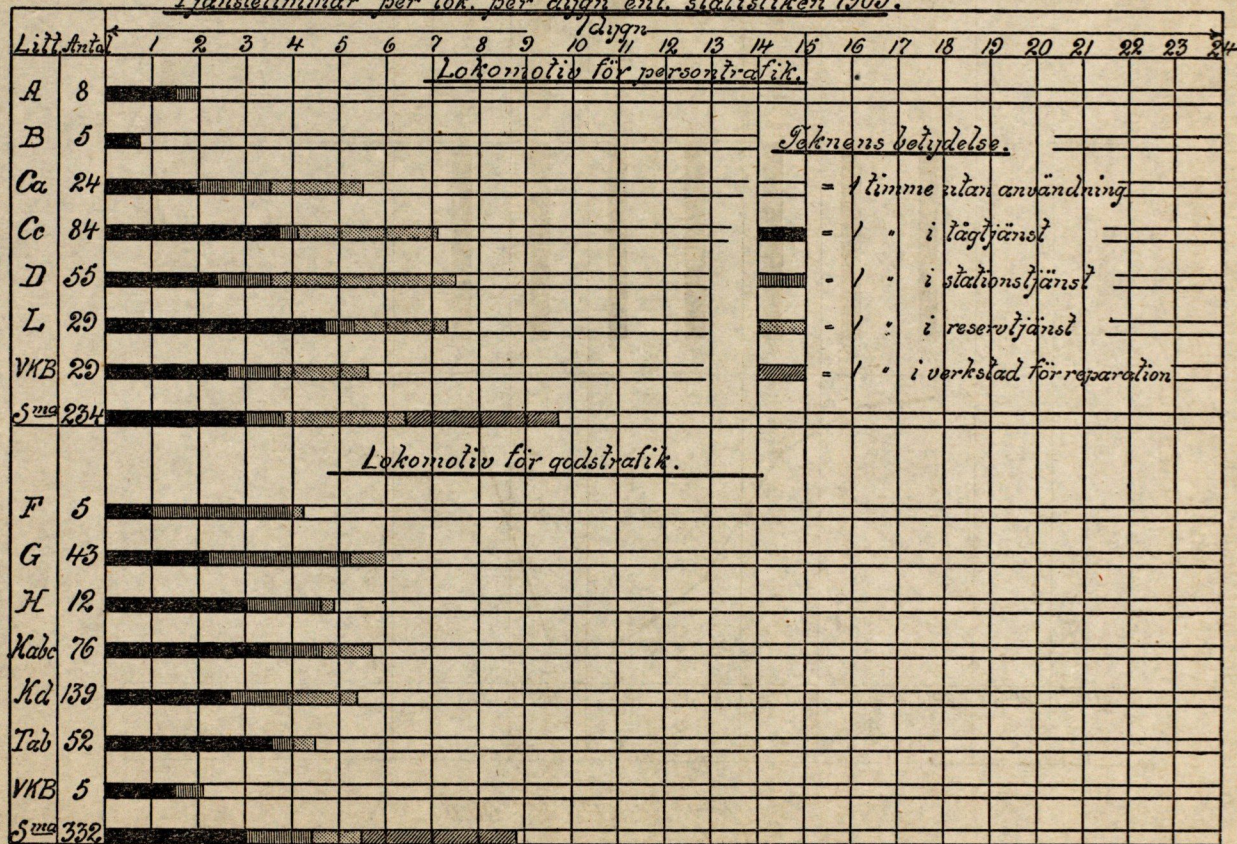 Tjänstetimmar per lok. per dygn enl. statistiken 1905.
1 dygn
Litt. Antal 1 2 3 4 5 6 7 8 9 10 11 12 13 14 15 16 17 18 19 20 21 22 23 24
Lokomotiv för persontrafik.
A 8
B 5
Teknens betydelse.
Ca 24
= 1 timme utan användning
Cc 84
= 1 " i tågtjänst
D 55
= 1 " i stationstjänst
L 29
= 1 " i reservtjänst
VKB 29
= 1 " i verkstad för reparation
Sma 234
Lokomotiv för godstrafik.
F 5
G 43
H 12
Kabc 76
Kd 139
Tab 52
VKB 5
Sma 332